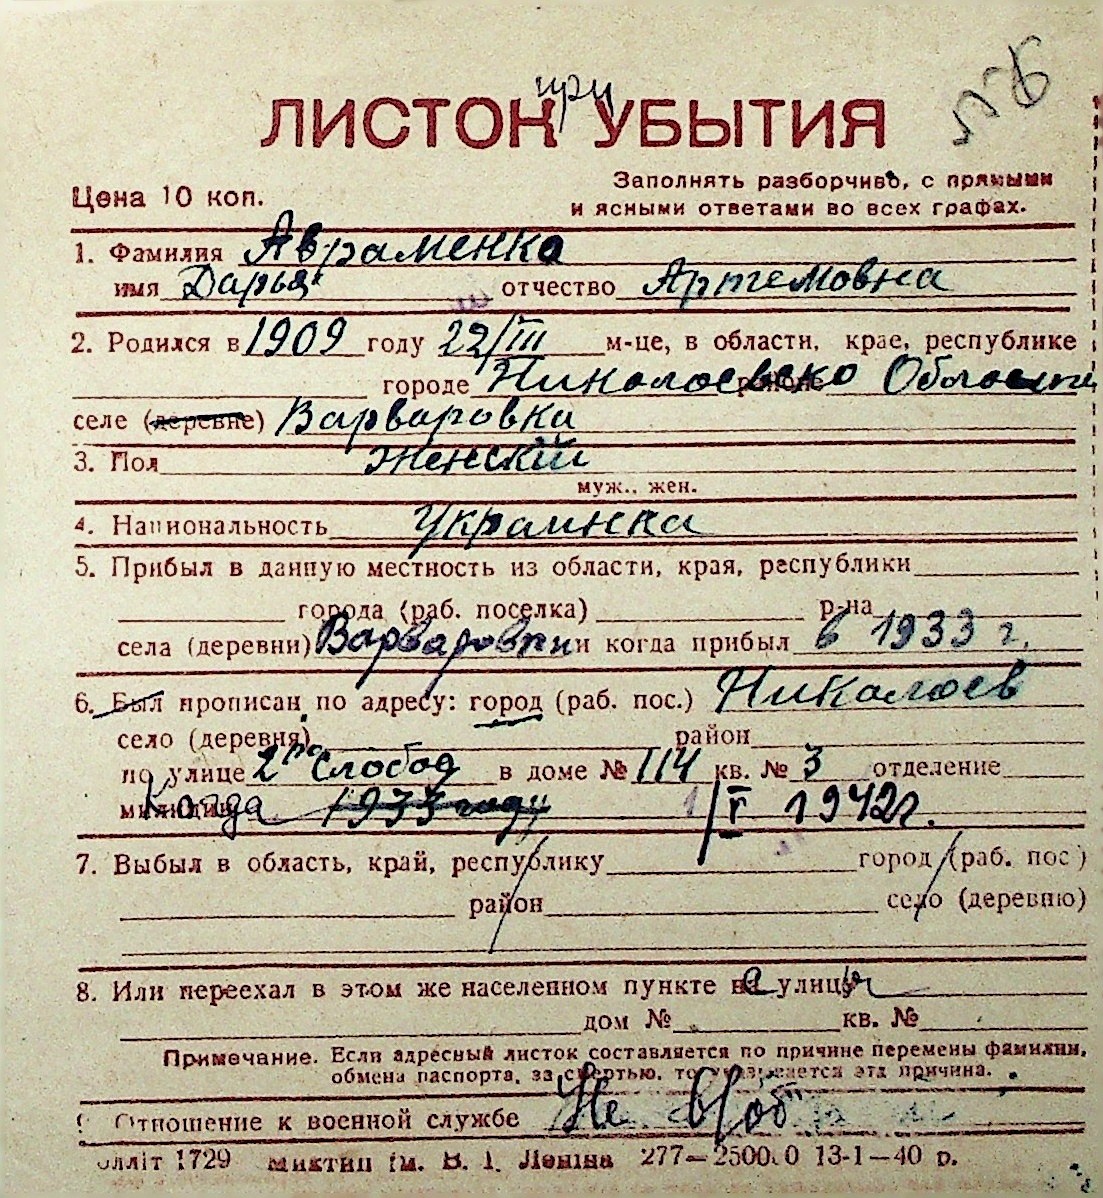 при
ЛИСТОК УБЫТИЯ
Цена 10 коп.
Заполнять разборчиво, с прямыми
и ясными ответами во всех графах.
1. Фамилия Авраменко
имя Дарья отчество Артемовна
2. Родился в 1909 году 22/III м-це, в области, крае, республике
городе Николаевско районе Области
селе (деревне) Варваровка
3. Пол женский
муж., жен.
4. Национальность Украинка
5. Прибыл в данную местность из области, края, республики
города (раб. поселка) р-на
села (деревни) Варваровки и когда прибыл в 1933 г.
6. Был прописан по адресу: город (раб. пос.) Николаев
село (деревня) район
по улице 2ая Слобод в доме № 114 кв. № 3 отделение
милиции Когда 1933 году 1/V 1942г.
7. Выбыл в область, край, республику город (раб. пос)
район село (деревню)
8. Или переехал в этом же населенном пункте на улицу
дом № кв. №
Примечание. Если адресный листок составляется по причине перемены фамилии,
обмена паспорта, за смертью, то указывается эта причина.
9 Отношение к военной службе Не в/об
олліт 1729 Миктип ім. В. І. Леніна 277—2500.0 13-1—40 р.